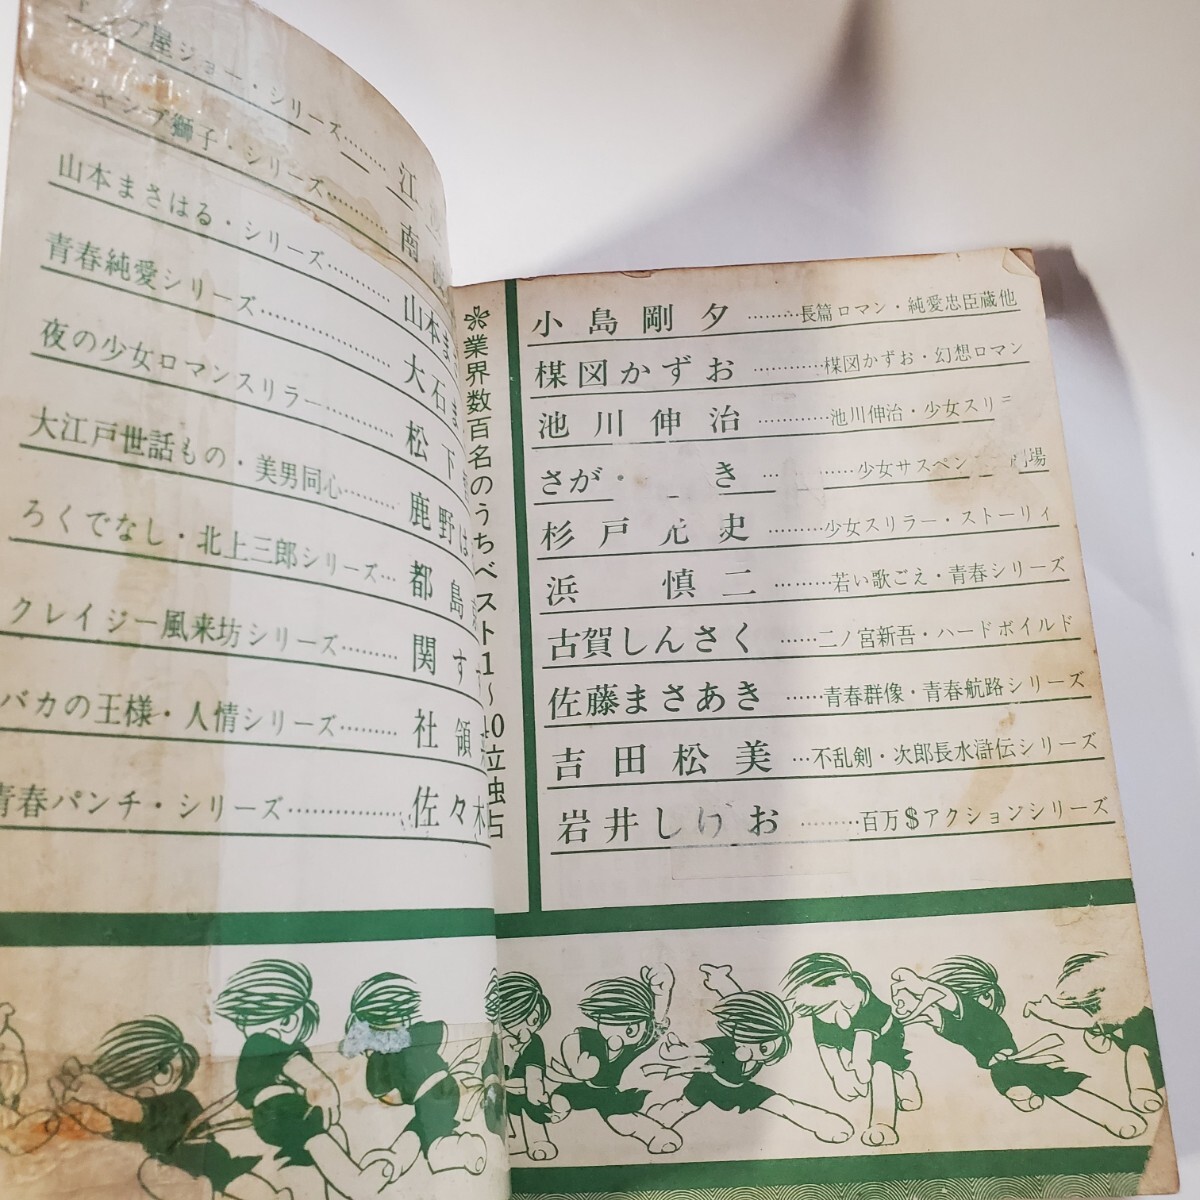 プ屋ジョー・シリーズ………江
ジャンプ獅子・シリーズ………南
山本まさはる・シリーズ………山本ま
青春純愛シリーズ………大石ま
夜の少女ロマンスリラー………松下
大江戸世話もの・美男同心………鹿野は
ろくでなし・北上三郎シリーズ…都島
クレイジー風来坊シリーズ………関す
バカの王様・人情シリーズ………社領
青春パンチ・シリーズ………佐々木
※業界数百名のうちベスト1～40位独占
小島剛夕………長篇ロマン・純愛忠臣蔵他
楳図かずお………楳図かずお・幻想ロマン
池川伸治………池川伸治・少女スリ
さが き………少女サスペン 場
杉戸光史………少女スリラー・ストーリィ
浜慎二………若い歌ごえ・青春シリーズ
古賀しんさく……二ノ宮新吾・ハードボイルド
佐藤まさあき……青春群像・青春航路シリーズ
吉田松美…不乱剣・次郎長水滸伝シリーズ
岩井しげお………百万$アクションシリーズ